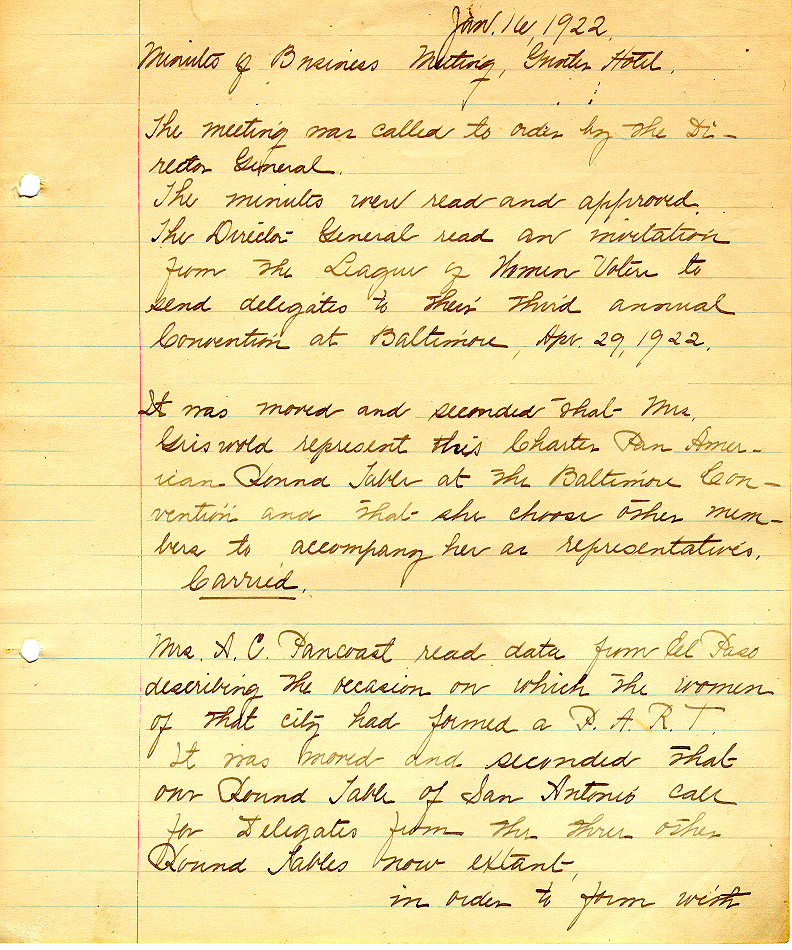 Jan. 16, 1922.
Minutes of Business Meeting, Gunter Hotel.
The meeting was called to order by the Di-
rector General.
The minutes were read and approved.
The Director General read an invitation
from the League of Women Voters to
send delegates to their third annual
Convention at Baltimore, Apr. 29, 1922.
It was moved and seconded that Mrs.
Griswold represent this Charter Pan Amer-
ican Round Table at the Baltimore Con-
vention and that she choose other mem-
bers to accompany her as representatives.
Carried.
Mrs. A. C. Pancoast read data from El Paso
describing the occasion on which the women
of that city had formed a P. A. R. T.
It was moved and seconded that
our Round Table of San Antonio call
for Delegates from the three other
Round Tables now extant,
in order to form with